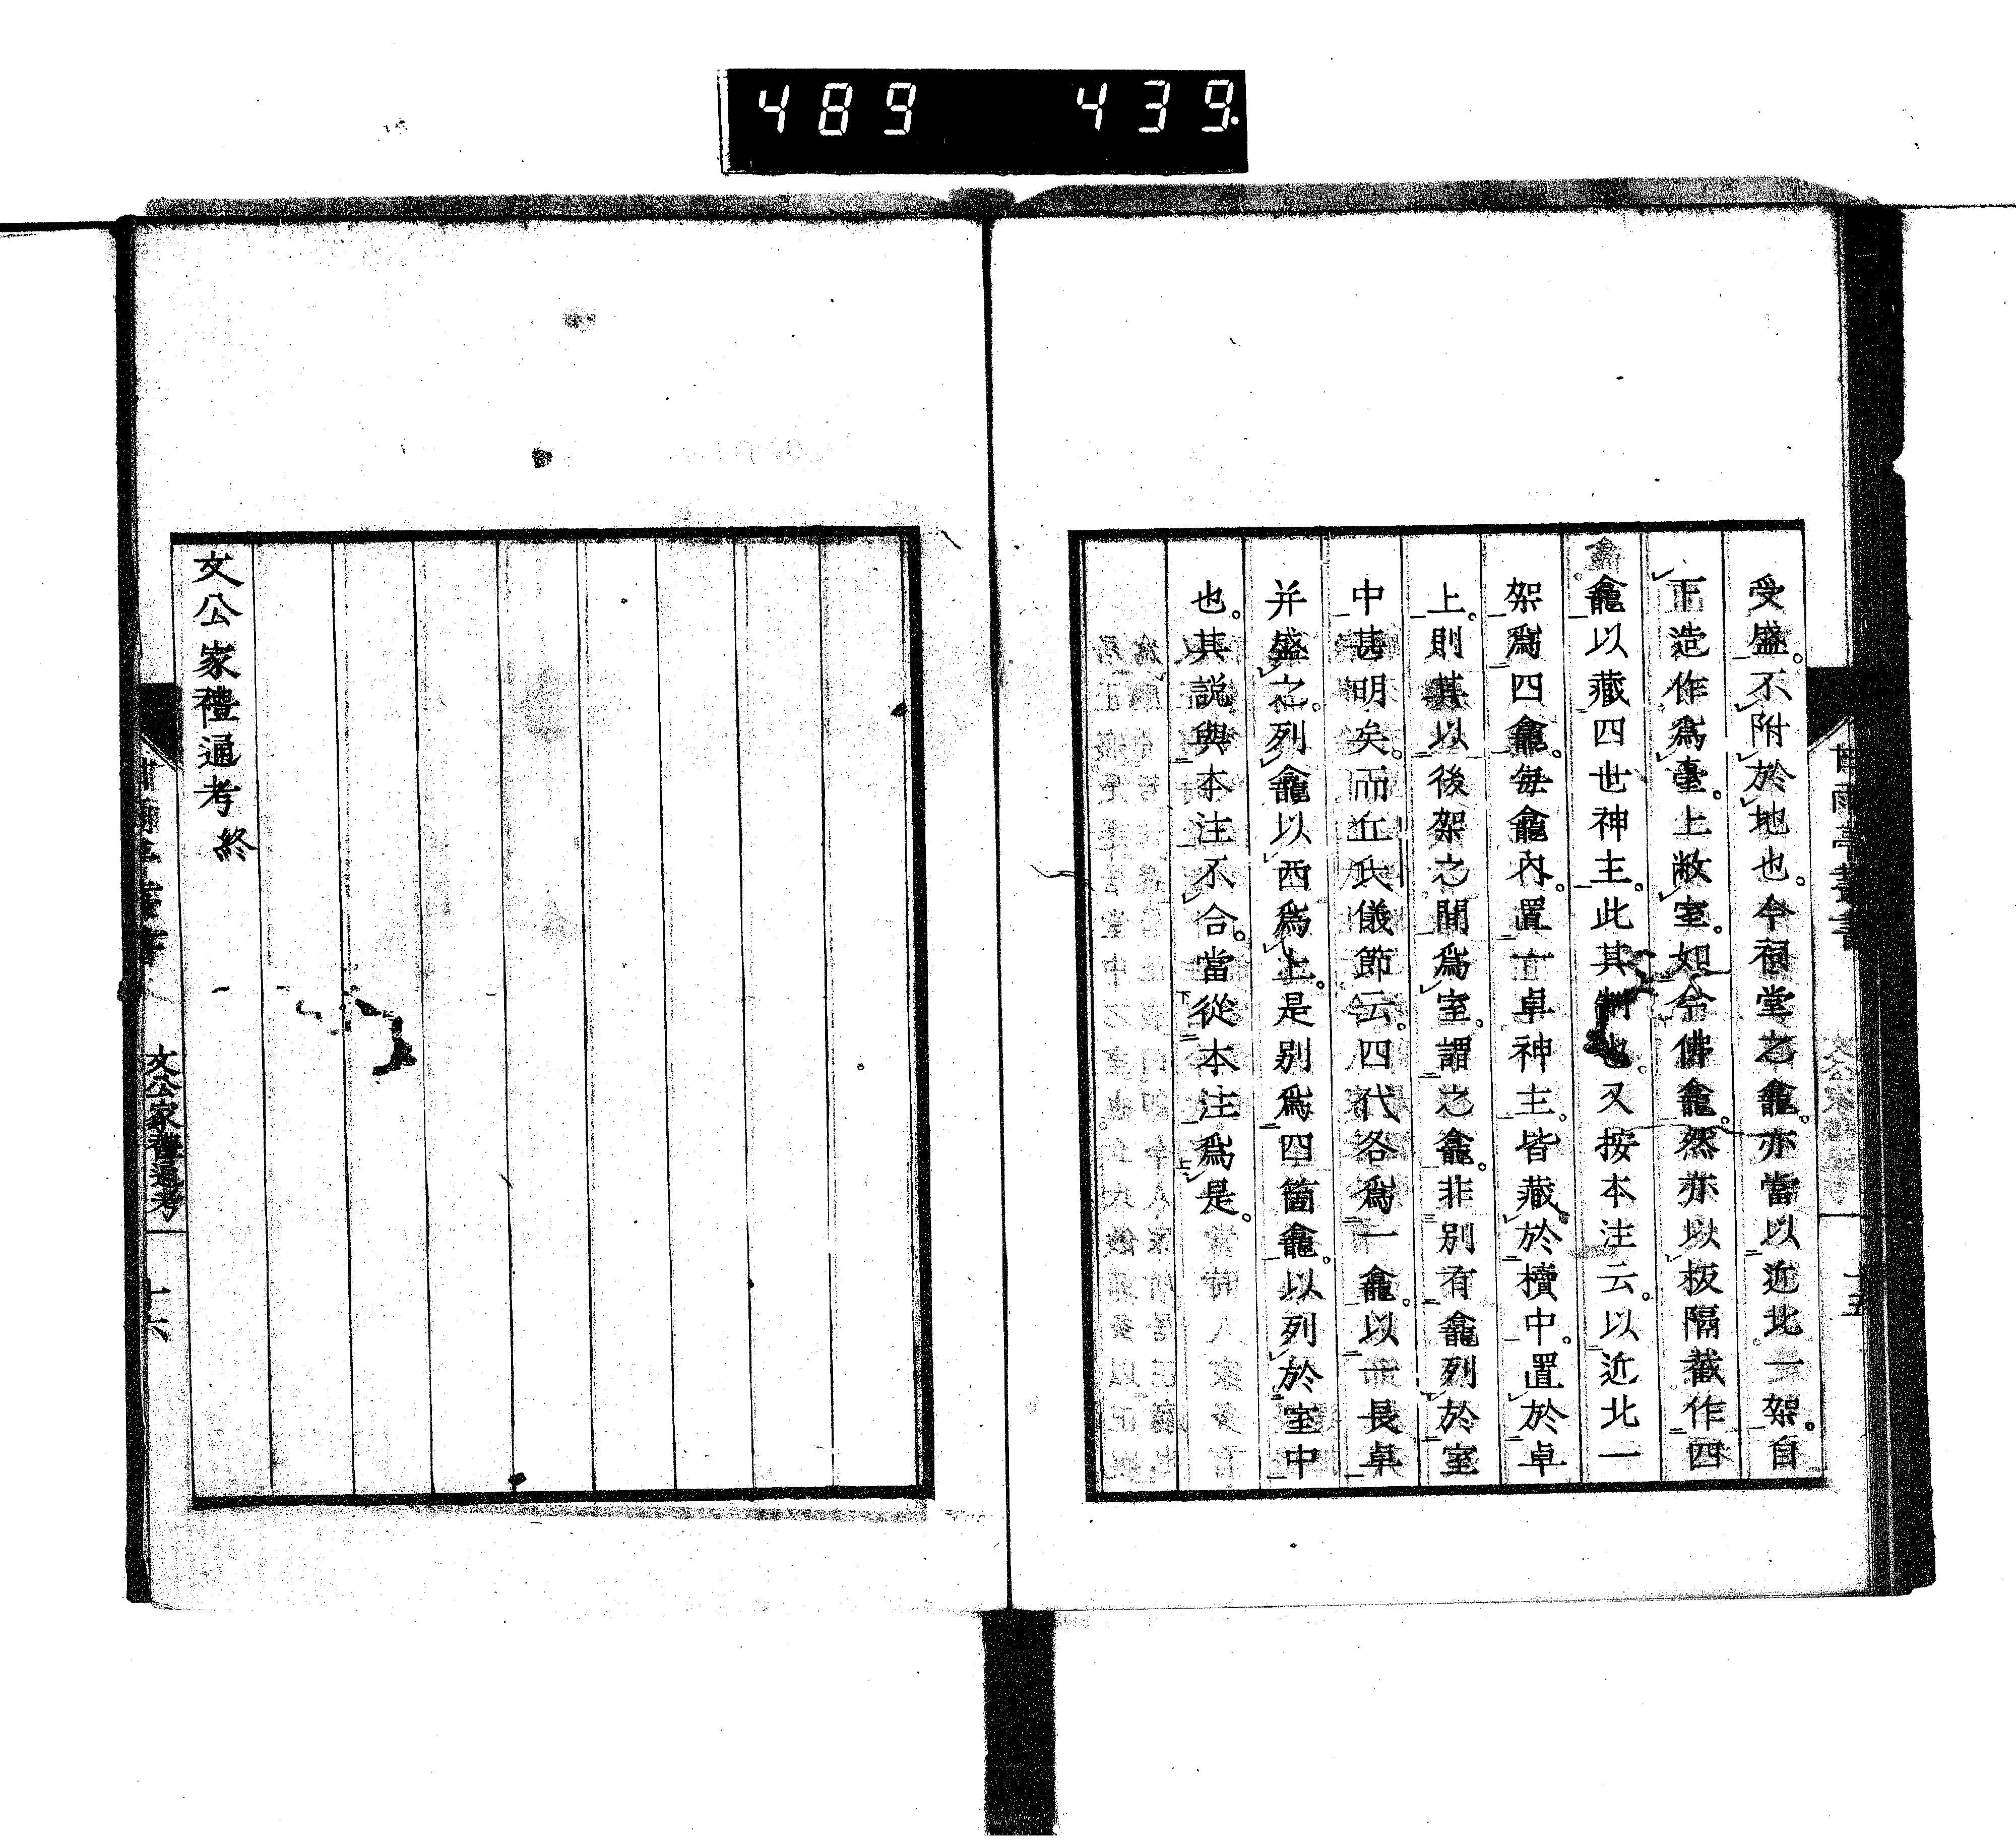 489 439
受盛。不附於地也。今祠堂之龕。亦當以近北一架。自
下造作爲臺。上敝室。如今佛龕。然亦以板隔截作四
龕以藏四世神主。此其制也。又按本注云。以近北一
架爲四龕。毎龕內。置一卓神主。皆藏於櫝中。置於卓
上。則其以後架之間爲室。謂之龕。非別有龕列於室
中甚明矣。而丘氏儀節云。四代各爲一龕。以一長卓
并盛之。列龕以西爲上。是別爲四箇龕。以列於室中
也。其説與本注不合。當從本注爲是。
文公家禮通考 終
文公家禮通考
十六